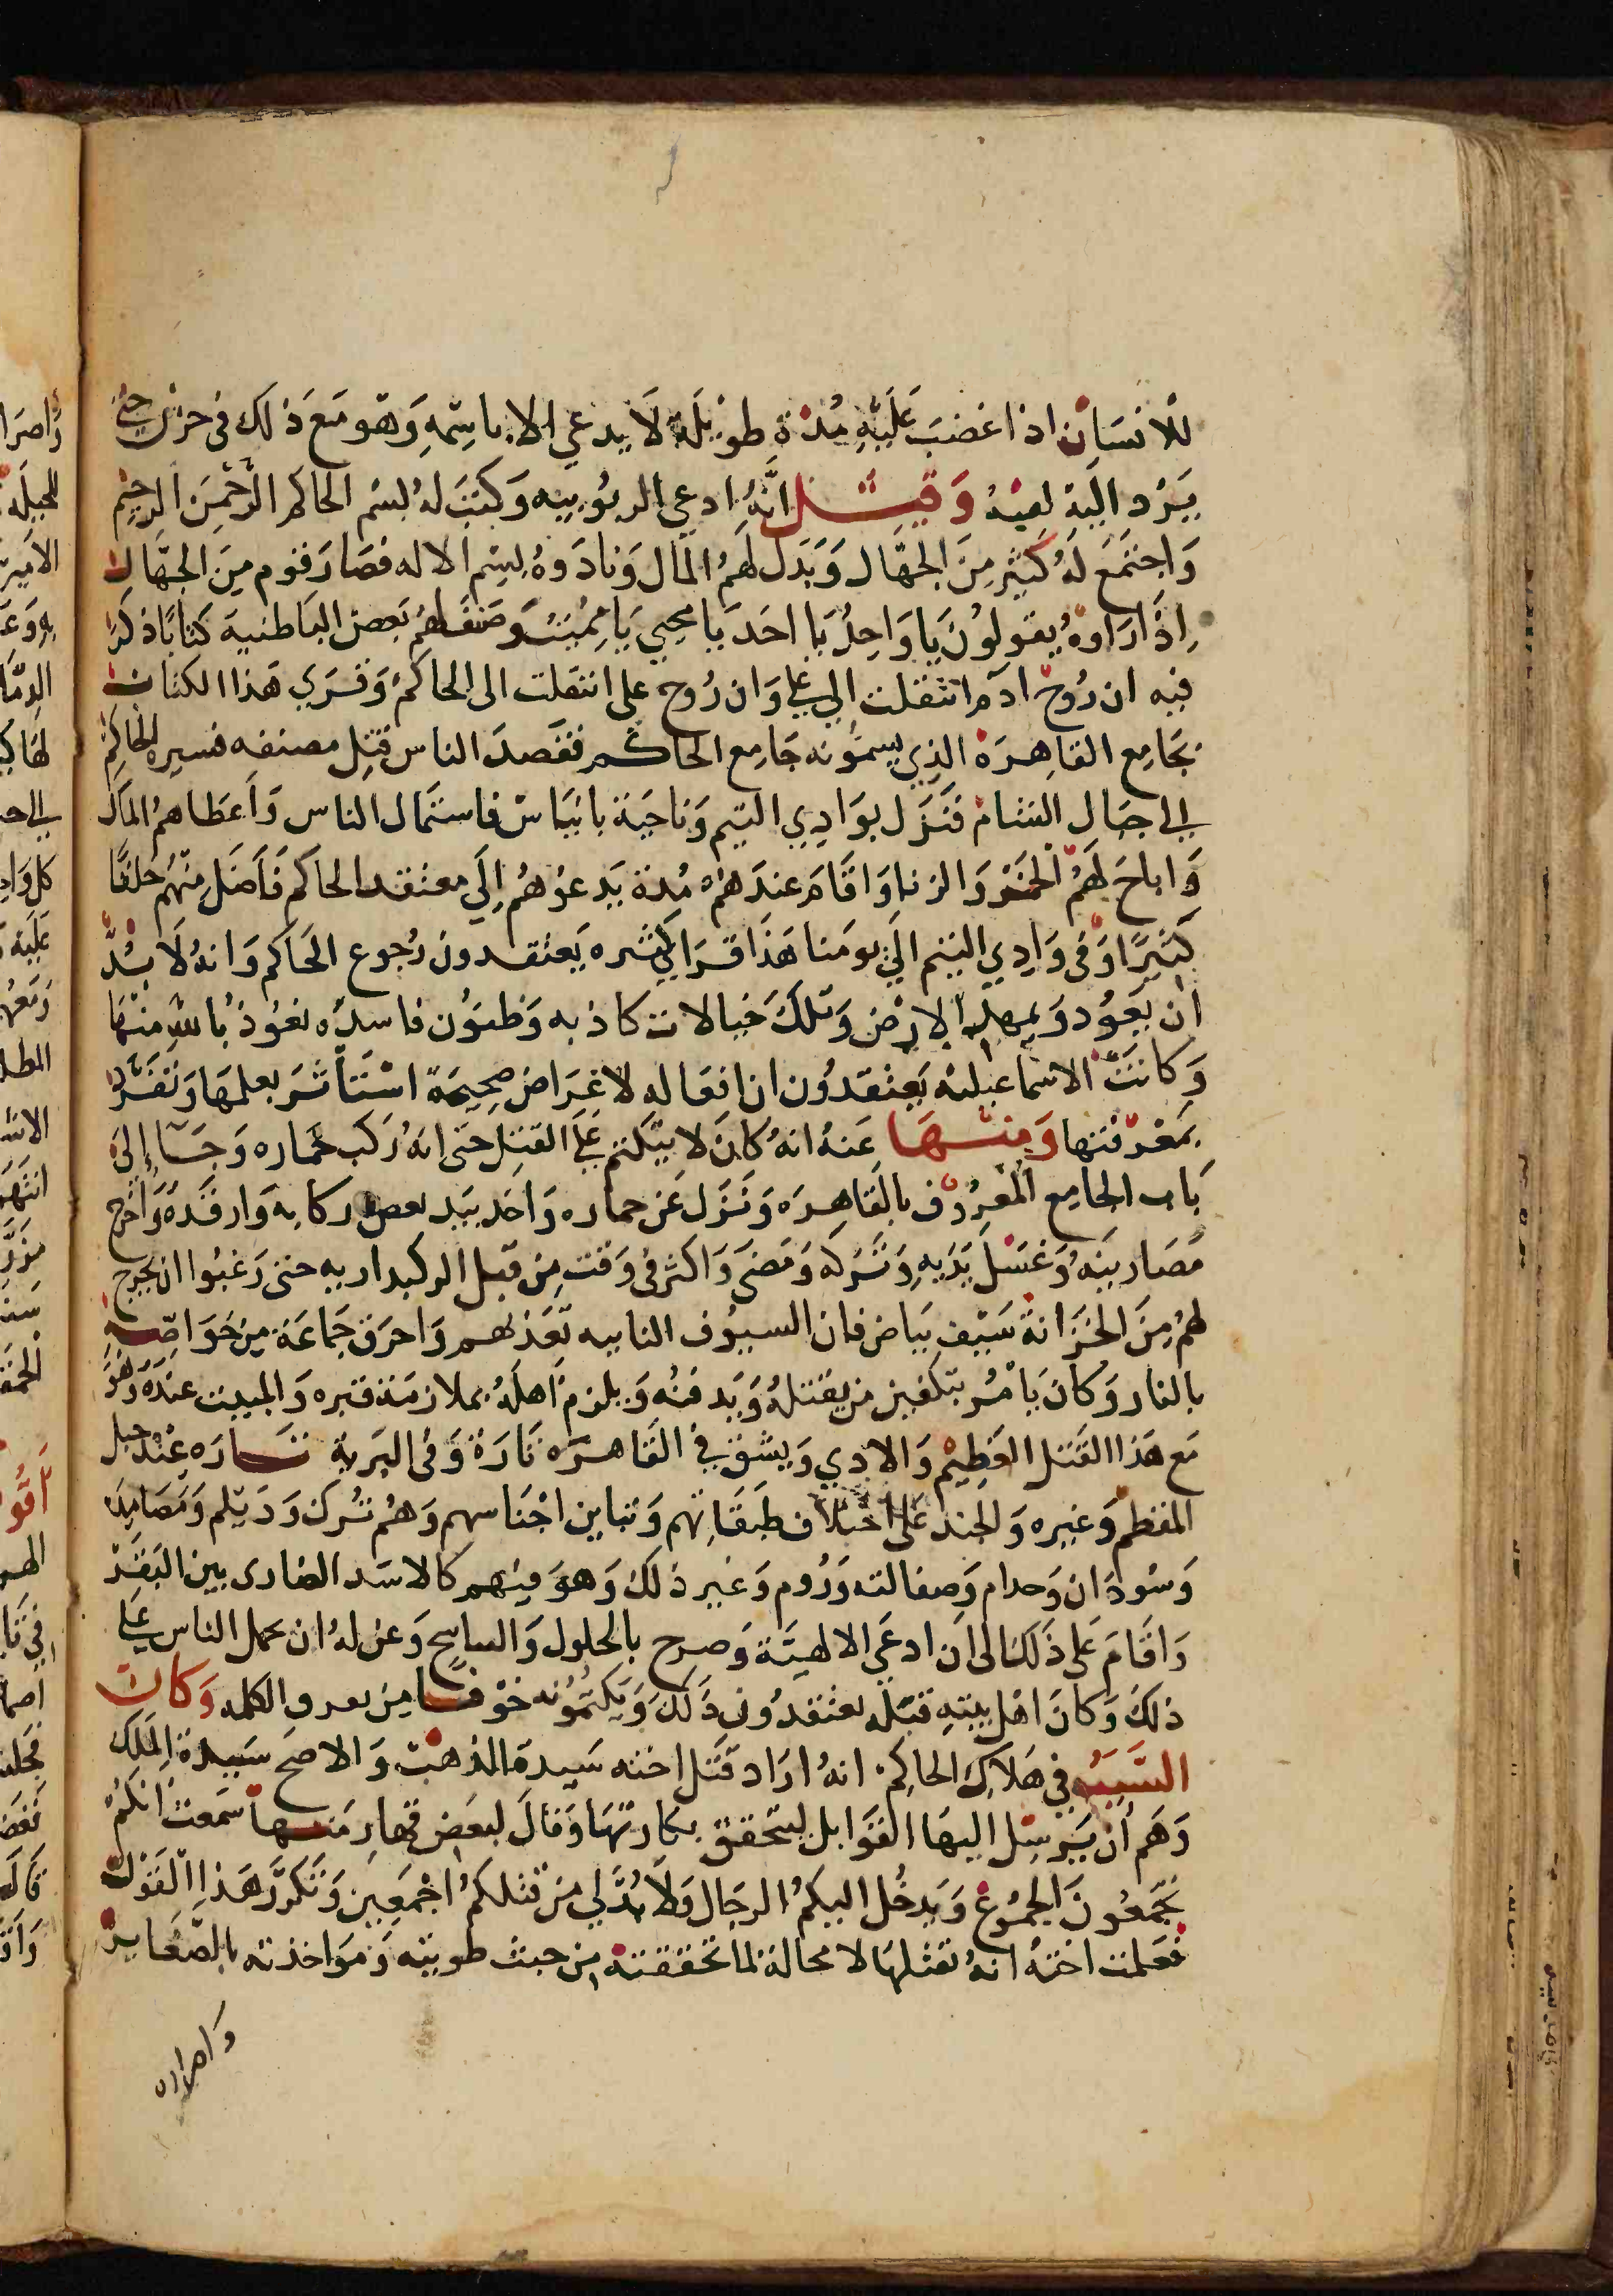 للانسان اذا غضب عليه مدة طويلة لا يدعي الا باسمه وهو مع ذلك فى حزن حتى
يرد اليه لقبه وقيل انه ادعي الربوبيه وكتب له بسم الحاكم الرحمن الرحيم
واجتمع له كثير من الجهال وبذل لهم المال ونادوه بسم الاله فصار قوم من الجهال
اذا راوه يقولون يا واحد يا احد يا محيي يا مميت وصنف لهم بعض الباطنية كتابا ذكر
فيه ان روح ادم انتقلت الي علي وان روح على انتقلت الى الحاكم وقري هذا الكتاب
بجامع القاهرة الذي يسمونه جامع الحاكم فقصد الناس قتل مصنفه فسيره الحاكم
الى جبال الشام فنزل بوادي التيم وناحية بانياس فاستمال الناس واعطاهم المال
واباح لهم الخمر والزنا واقام عندهم مدة يدعوهم الي معتقد الحاكم فاضل منهم خلقا
كثيرا وفى وادي التيم الي يومنا هذا قرا كثيره يعتقدون رجوع الحاكم وانه لا بد
ان يعود ويمهد الارض وتلك خيالات كاذبه وظنون فاسده نعوذ بالله منها
وكانت الاسماعيلية يعتقدون ان افعاله لاغراض صحيحة استأثر بعلمها وتفرد
بمعرفتها ومنها عنه انه كان لا يتكتم على القتل حتى انه ركب حماره وجا الى
باب الجامع المعروف بالقاهره ونزل عن حماره واخذ بيد بعض ركابه وارقده واخرج
مصارينه وغسل يديه وتركه ومضى واكثر فى وقت من قبل الركبداريه حتى رغبوا ان يخرج
لهم من الخزانة سيف بياض فان السيوف النابيه تعذبهم واحرق جماعة من خواصه
بالنار وكان يامر بتكفين من يقتله ويدفنه ويلزم اهله بملازمة قبره والمبيت عنده وهو
مع هذا القتل العظيم والادي ويشق فى القاهره تارة وفى البرية تاره عند جبل
المقطم وغيره والجند على اختلاف طبقاتهم وتباين اجناسهم وهم ترك وديلم ومصامده
وسودان وخدام وصقالته وروم وغير ذلك وهو فيهم كالاسد الضارى بين البقر
واقام على ذلك الى ان ادعي الالهية وصرح بالحلول والساسح وعن له ان يحمل الناس علي
ذلك وكان اهل بيته قبله يعتقدون ذلك ويكتمونه خوفا من تعرق الكلمه وكان
السبب في هلاك الحاكم انه اراد قتل اخته سيدة المذهب والاصح سيدة الملك
وهم أن يرسل اليها القوابل ليتحقق بكارتها وقال لبعض قهارمتها سمعت انكم
تجمعون الجموع ويدخل اليكم الرجال ولا بد لي من قتلكم اجمعين وتكرر هذا القول
فعلمت اخته انه يقتلها لا محالة لما تحققته من حيث طويته ومواخذته بالصغاير
واصراره